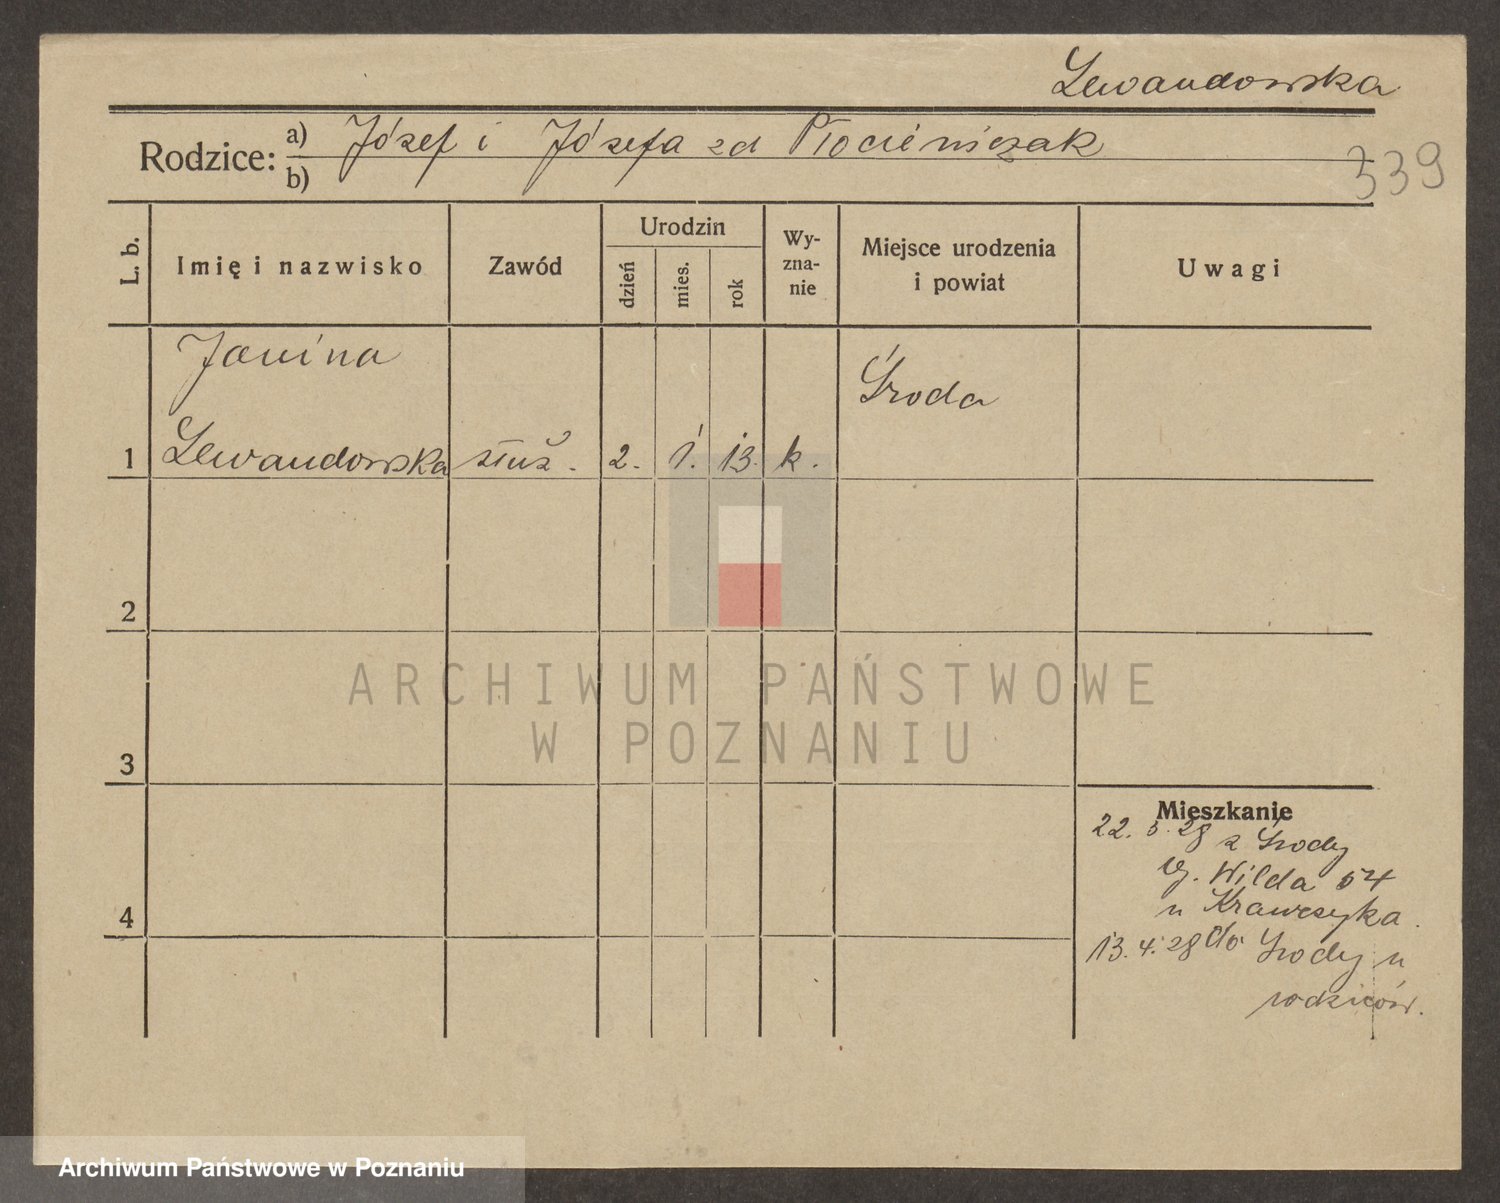 Lewandowska
Rodzice: a) Józef i Józefa zd Płócieniczak
b)
339
L. b.
Imię i nazwisko
Zawód
Urodzin
dzień
mies.
rok
Wy-
zna-
nie
Miejsce urodzenia
i powiat
Uwagi
Janina
Środa
1 Lewandowska służ. 2. 1. 13. k.
2
ARCHIWUM PAŃSTWOWE
W POZNANIU
3
Mieszkanie
22. 3. 28 z Środy
Wilda 54
u Krawczyka.
4
13. 4. 28 do Środy u
rodziców.
Archiwum Państwowe w Poznaniu